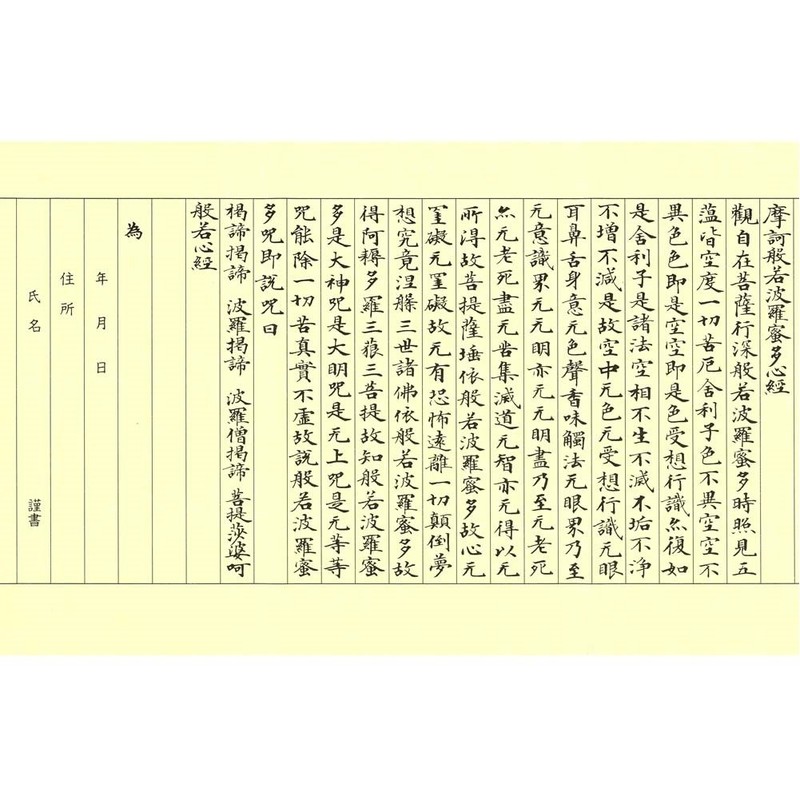 摩訶般若波羅蜜多心經
觀自在菩薩行深般若波羅蜜多時照見五
薀皆空度一切苦厄舍利子色不異空空不
異色色即是空空即是色受想行識亦復如
是舍利子是諸法空相不生不滅不垢不淨
不增不減是故空中无色无受想行識无眼
耳鼻舌身意无色聲香味觸法无眼界乃至
无意識界无无明亦无无明盡乃至无老死
亦无老死盡无苦集滅道无智亦无得以无
所得故菩提薩埵依般若波羅蜜多故心无
罣礙无罣礙故无有恐怖遠離一切顛倒夢
想究竟涅槃三世諸佛依般若波羅蜜多故
得阿耨多羅三藐三菩提故知般若波羅蜜
多是大神咒是大明咒是无上咒是无等等
咒能除一切苦真實不虛故說般若波羅蜜
多咒即說咒曰
揭諦揭諦 波羅揭諦 波羅僧揭諦 菩提莎婆呵
般若心經
為
年 月 日
住所
氏名 謹書